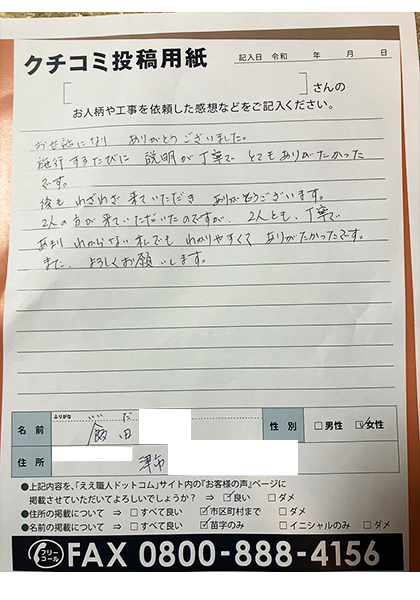 クチコミ投稿用紙
記入日 令和 年 月 日
[ ]さんの
お人柄や工事を依頼した感想などをご記入ください。
お世話になり ありがとうございました。
施行するたびに 説明が丁寧で とてもありがたかった
です。
後も わざわざ 来ていただき ありがとうございます。
2人の方が来ていただいたのですが、2人とも、丁寧で
あまり わからない 私でも わかりやすくて ありがたかったです。
また、よろしくお願いします。
ふりがな いいだ
名前 飯田
性別 □男性 ☑女性
住所 津市
●上記内容を、「ええ職人ドットコム」サイト内の『お客様の声』ページに
掲載させていただいてよろしいでしょうか? ⇒ ☑良い □ダメ
●住所の掲載について ⇒ □すべて良い ☑市区町村まで □ダメ
●名前の掲載について ⇒ □すべて良い ☑苗字のみ □イニシャルのみ □ダメ
フリーコール FAX 0800-888-4156